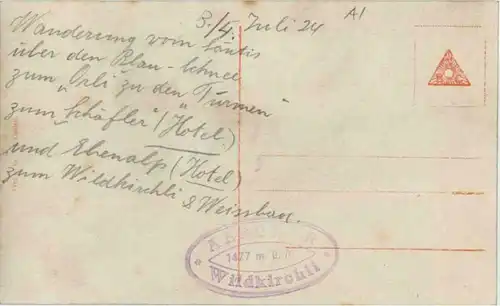 3./4. Juli 24
A1
Wanderung vom Säntis
über den Blau-Schnee
zum "Örli" zu den "Türmen"
zum "Schäfler" (Hotel.)
und Ebenalp (Hotel)
zum Wildkirchli & Weissbad.
1477 m. ü. M.
Wildkirchli